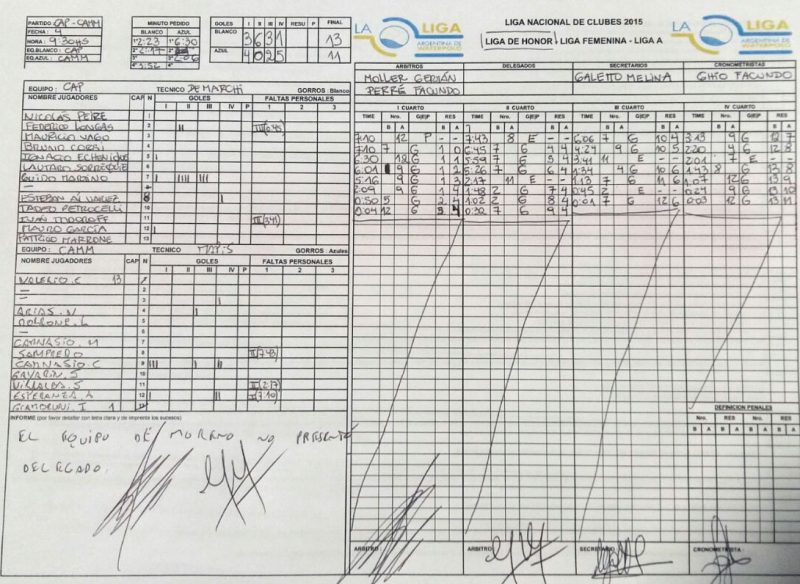 PARTIDO: CAP - CAMM
FECHA: 9
HORA: 9:30HS
EQ.BLANCO: CAP
EQ.AZUL: CAMM
MINUTO PEDIDO
BLANCO AZUL
1º 2:23 1º 6:30
GOLES I II III IV RESU P FINAL
BLANCO 3 6 3 1 13
AZUL 4 0 2 5 11
LA LIGA
ARGENTINA DE WATERPOLO
LIGA NACIONAL DE CLUBES 2015
LIGA DE HONOR - LIGA FEMENINA - LIGA A
LA LIGA
ARGENTINA DE WATERPOLO
ARBITROS DELEGADOS SECRETARIOS CRONOMETRISTAS
MOLLER GERMÁN GALETTO MELINA GHIO FACUNDO
PERRÉ FACUNDO
EQUIPO: CAP TECNICO DE MARCHI GORROS: Blanco
NOMBRE JUGADORES CAP N GOLES FALTAS PERSONALES
I II III IV P 1 2 3
NICOLAS PEIRE 1
FEDERICO LONGAS 2
MAURICIO VAGO 3
BRUNO CORSI 4
IGNACIO ECHENIQUE 5
LAUTARO 6
GUIDO MARTINO 7
8
ESTEBAN ALVAREZ 9
TADEO PETROCELLI 10
IVAN TODOROFF 11 III(3:41)
MAURO GARCÍA 12
PATRICIO MARRONE 13
EQUIPO: CAMM TECNICO GORROS: Azules
NOMBRE JUGADORES CAP N GOLES FALTAS PERSONALES
I II III IV P 1 2 3
VALERIO.C 13
ARIAS.N 4
5
CAMNASIO.M 7
SAMPIERO 8 II(7:43)
CAMNASIO.C 9
GAVARIN.S 10
VILLALBA.S 11 II(2:17)
ESPERANZA.A 12 I(7:10)
GIAMBRUNI.I 1
INFORME (por favor detallar con letra clara y de imprenta los sucesos)
EL EQUIPO DE MORENO NO PRESENTO
DELEGADO.
I CUARTO II CUARTO III CUARTO IV CUARTO
TIME Nro. G|E|P RES TIME Nro. G|E|P RES TIME Nro. G|E|P RES TIME Nro. G|E|P RES
B A B A B A B A B A B A B A B A
7:10 12 P - - 7:43 8 E - - 6:06 7 G 10 4 3:13 9 G 12 7
7:10 7 G 1 0 6:45 7 G 4 4 4:24 9 G 10 5 2:20 4 G 12 8
6:30 12 G 1 1 5:59 7 G 5 4 3:41 11 E - - 2:01 7 E - -
6:01 9 G 1 2 5:26 7 G 6 4 1:34 4 G 10 6 1:43 8 G 13 8
5:16 9 G 1 3 2:17 11 E - - 1:13 7 G 11 6 1:07 12 G 13 9
2:09 9 G 1 4 1:48 2 G 7 4 0:45 2 E - - 0:24 9 G 13 10
0:50 5 G 2 4 1:02 2 G 8 4 0:01 7 G 12 6 0:03 12 G 13 11
0:04 12 G 3 4 0:32 7 G 9 4
DEFINICION PENALES
Nro. RES Nro. RES
B A B A B A B A
ARBITRO ARBITRO SECRETARIO CRONOMETRISTA